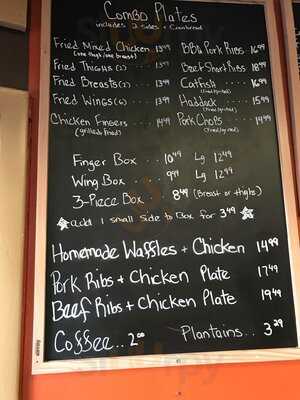 Combo Plates
includes 2 sides + Cornbread
Fried Mixed Chicken 13.99
(one thigh/one breast)
Fried Thighs (2) 13.99
Fried Breasts (2) 13.99
Fried Wings (6) 13.99
Chicken Fingers 14.99
(grilled/fried)
BBQ Pork Ribs 16.99
Beef Short Ribs 18.99
Catfish 16.99
(Fried/grilled)
Haddock 15.99
(Fried/grilled)
Pork Chops 14.99
(Fried/grilled)
Finger Box 10.49 Lg 12.49
Wing Box 9.99 Lg 12.49
3-Piece Box 8.49 (Breast or thighs)
add 1 small Side to Box for 3.49
Homemade Waffles + Chicken 14.99
Pork Ribs + Chicken Plate 17.49
Beef Ribs + Chicken Plate 19.49
Coffee... 2.00 Plantains.. 3.29